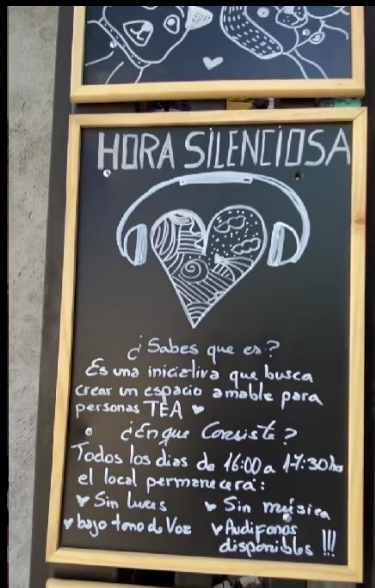 HORA SILENCIOSA
¿Sabes que es?
Es una iniciativa que busca
crear un espacio amable para
personas TEA ♥
¿En que Consiste?
Todos los dias de 16:00 a 17:30 hs
el local permanecerá:
♥ Sin luces ♥ Sin música
♥ bajo tono de Voz ♥ Audifonos
disponibles !!!